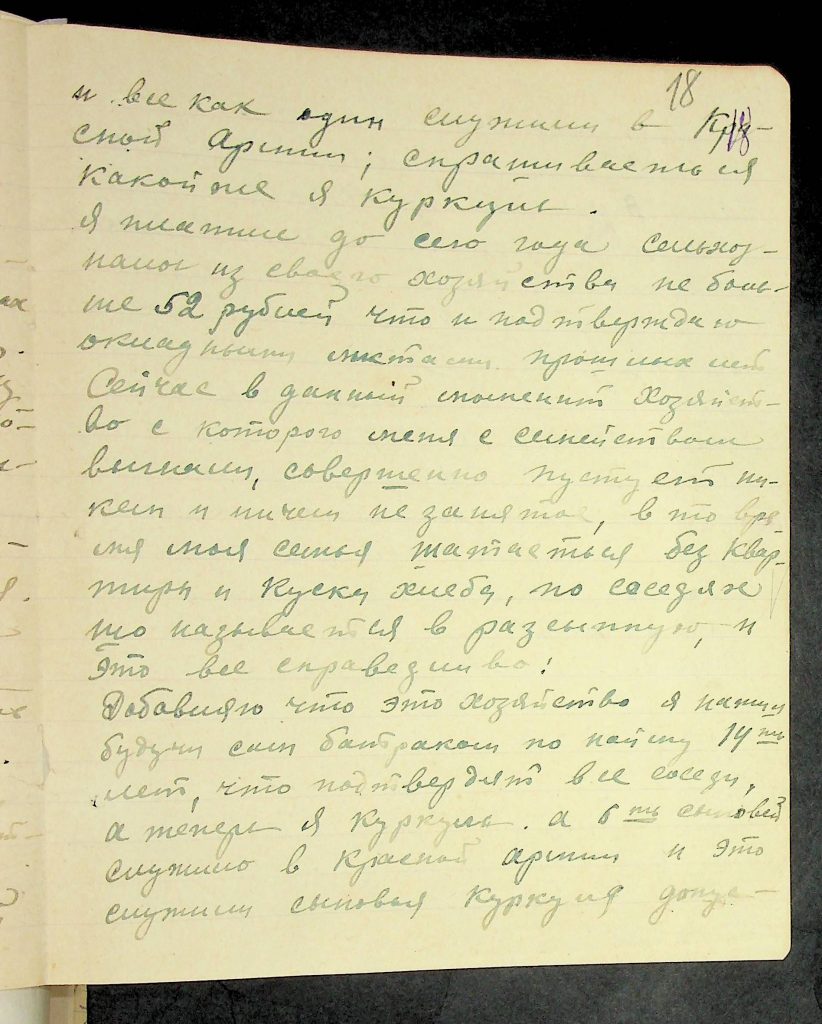 18
и все как один служили в Кра-
18
сной Армии; спрашиваеться
какой же я куркуль.
я платил до сего года сельхоз-
налог из своего хозяйства не боль-
ше 52 рублей что и подтверждаю
окладными листами прошлых лет
Сейчас в данный момент хозяйст-
во с которого меня с семейством
выгнали, совершенно пустует ни-
кем и ничем не занятое, в то вре
мя моя семья шатаеться без квар-
тиры и куску хлеба, по соседям
що называется в разсыпную, и
это все справедливо!
Добавляю что это хозяйство я нажил
будучи сам батраком по найму 14ть
лет, что подтвердят все соседи,
а теперь я куркуль. а 6ть сыновей
служило в красной армии и это
служили сыновья куркуля допус-